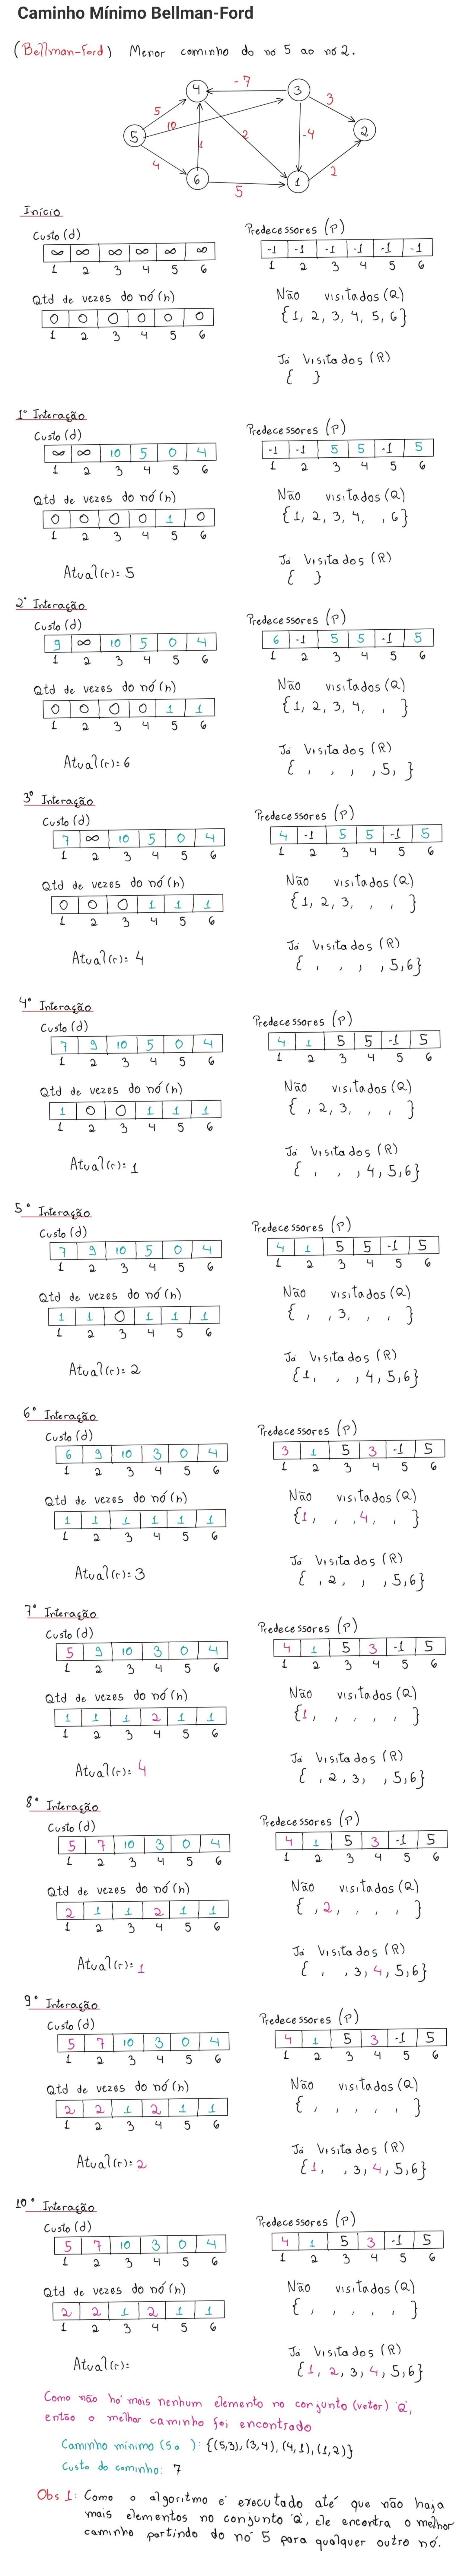 Caminho Mínimo Bellman-Ford
(Bellman-Ford) Menor caminho do nó 5 ao nó 2.
-7
4
3
5
3
10
5
2
1
2
-4
4
2
6
5
1
Início
Custo (d)
∞ ∞ ∞ ∞ ∞ ∞
1 2 3 4 5 6
Predecessores (P)
-1 -1 -1 -1 -1 -1
1 2 3 4 5 6
Qtd de vezes do nó (n)
0 0 0 0 0 0
1 2 3 4 5 6
Não visitados (Q)
{1, 2, 3, 4, 5, 6}
Já Visitados (R)
{ }
1º Interação
Custo (d)
∞ ∞ 10 5 0 4
1 2 3 4 5 6
Predecessores (P)
-1 -1 5 5 -1 5
1 2 3 4 5 6
Qtd de vezes do nó (n)
0 0 0 0 1 0
1 2 3 4 5 6
Não visitados (Q)
{1, 2, 3, 4, , 6}
Atual (r): 5
Já Visitados (R)
{ }
2º Interação
Custo (d)
9 ∞ 10 5 0 4
1 2 3 4 5 6
Predecessores (P)
6 -1 5 5 -1 5
1 2 3 4 5 6
Qtd de vezes do nó (n)
0 0 0 0 1 1
1 2 3 4 5 6
Não visitados (Q)
{1, 2, 3, 4, , }
Atual (r): 6
Já Visitados (R)
{ , , , , 5, }
3º Interação
Custo (d)
7 ∞ 10 5 0 4
1 2 3 4 5 6
Predecessores (P)
4 -1 5 5 -1 5
1 2 3 4 5 6
Qtd de vezes do nó (n)
0 0 0 1 1 1
1 2 3 4 5 6
Não visitados (Q)
{1, 2, 3, , , }
Atual (r): 4
Já Visitados (R)
{ , , , , 5,6}
4º Interação
Custo (d)
7 9 10 5 0 4
1 2 3 4 5 6
Predecessores (P)
4 1 5 5 -1 5
1 2 3 4 5 6
Qtd de vezes do nó (n)
1 0 0 1 1 1
1 2 3 4 5 6
Não visitados (Q)
{ , 2, 3, , , }
Atual (r): 1
Já Visitados (R)
{ , , , 4, 5, 6}
5º Interação
Custo (d)
7 9 10 5 0 4
1 2 3 4 5 6
Predecessores (P)
4 1 5 5 -1 5
1 2 3 4 5 6
Qtd de vezes do nó (n)
1 1 0 1 1 1
1 2 3 4 5 6
Não visitados (Q)
{ , , 3, , , }
Atual (r): 2
Já Visitados (R)
{1, , , 4, 5, 6}
6º Interação
Custo (d)
6 9 10 3 0 4
1 2 3 4 5 6
Predecessores (P)
3 1 5 3 -1 5
1 2 3 4 5 6
Qtd de vezes do nó (n)
1 1 1 1 1 1
1 2 3 4 5 6
Não visitados (Q)
{1, , , 4, , }
Atual (r): 3
Já Visitados (R)
{ , 2, , , 5, 6}
7º Interação
Custo (d)
5 9 10 3 0 4
1 2 3 4 5 6
Predecessores (P)
4 1 5 3 -1 5
1 2 3 4 5 6
Qtd de vezes do nó (n)
1 1 1 2 1 1
1 2 3 4 5 6
Não visitados (Q)
{1, , , , , }
Atual (r): 4
Já Visitados (R)
{ , 2, 3, , 5, 6}
8º Interação
Custo (d)
5 7 10 3 0 4
1 2 3 4 5 6
Predecessores (P)
4 1 5 3 -1 5
1 2 3 4 5 6
Qtd de vezes do nó (n)
2 1 1 2 1 1
1 2 3 4 5 6
Não visitados (Q)
{ , 2, , , , }
Atual (r): 1
Já Visitados (R)
{ , , 3, 4, 5, 6}
9º Interação
Custo (d)
5 7 10 3 0 4
1 2 3 4 5 6
Predecessores (P)
4 1 5 3 -1 5
1 2 3 4 5 6
Qtd de vezes do nó (n)
2 2 1 2 1 1
1 2 3 4 5 6
Não visitados (Q)
{ , , , , , }
Atual (r): 2
Já Visitados (R)
{1, , 3, 4, 5, 6}
10º Interação
Custo (d)
5 7 10 3 0 4
1 2 3 4 5 6
Predecessores (P)
4 1 5 3 -1 5
1 2 3 4 5 6
Qtd de vezes do nó (n)
2 2 1 2 1 1
1 2 3 4 5 6
Não visitados (Q)
{ , , , , , }
Atual (r):
Já Visitados (R)
{1, 2, 3, 4, 5, 6}
Como não há mais nenhum elemento no conjunto (vetor) 'Q',
então o melhor caminho foi encontrado
Caminho mínimo (5 a ): {(5,3), (3,4), (4,1), (1,2)}
Custo do caminho: 7
Obs 1: Como o algoritmo é executado até que não haja
mais elementos no conjunto 'Q', ele encontra o melhor
caminho partindo do nó 5 para qualquer outro nó.